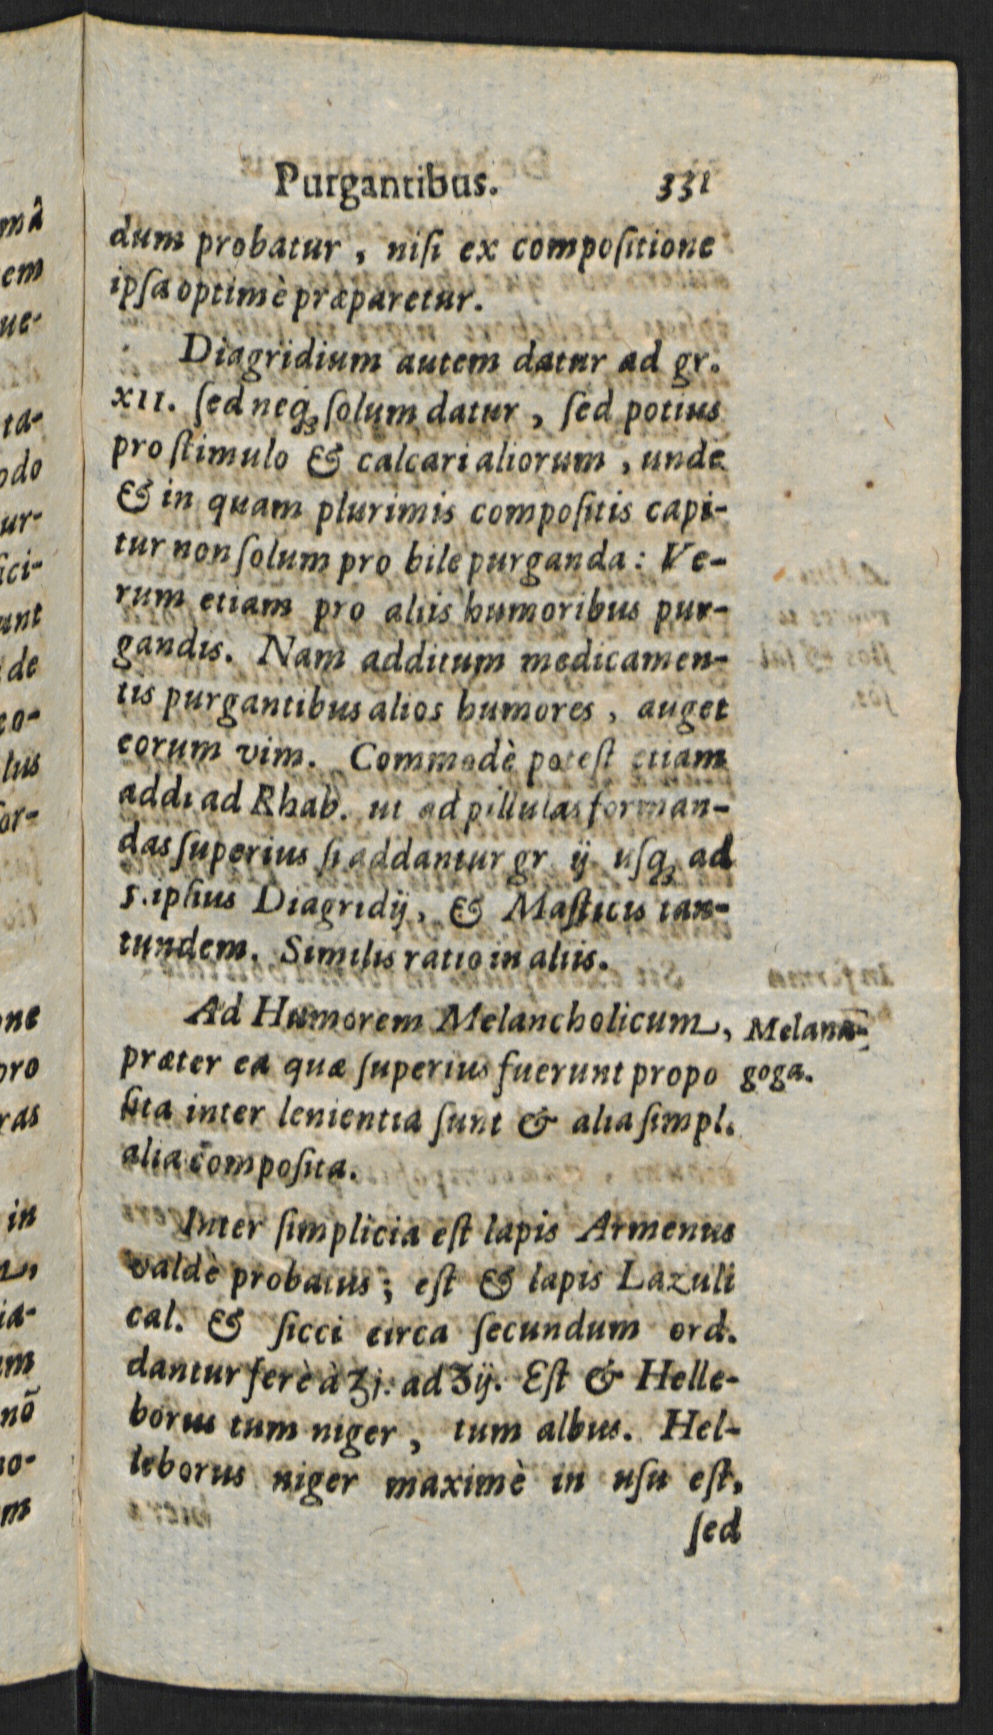 Purgantibus. 331
dum probatur, niſi ex compoſitione
ipſa optimè præparetur.
Diagridium autem datur ad gr.
XII. ſed neq; ſolum datur, ſed potius
pro ſtimulo & calcari aliorum, unde
& in quam plurimis compoſitis capi-
tur non ſolum pro bile purganda: Ve-
rum etiam pro aliis humoribus pur-
gandis. Nam additum medicamen-
tis purgantibus alios humores, auget
eorum vim. Commodè poteſt etiam
addi ad Rhab. ut ad pillulas forman-
das ſuperius ſi addantur gr ij uſq; ad
5. ipſius Diagridij, & Maſticis tan-
tundem. Similis ratio in aliis.
Ad Humorem Melancholicum, Melana-
præter ea quæ ſuperius fuerunt propo goga.
ſita inter lenientia ſunt & alia ſimpl.
alia compoſita.
Inter ſimplicia eſt lapis Armenus
valdè probatus; eſt & lapis Lazuli
cal. & ſicci circa ſecundum ord.
dantur ferè à ʒj. ad ʒij. Eſt & Helle-
borus tum niger, tum albus. Hel-
leborus niger maximè in uſu eſt,
ſed
mâ
em
ue-
ta-
odo
ur-
ici-
unt
de
co-
lus
for-
one
pro
ras
in
ia-
um
nõ
no-
m